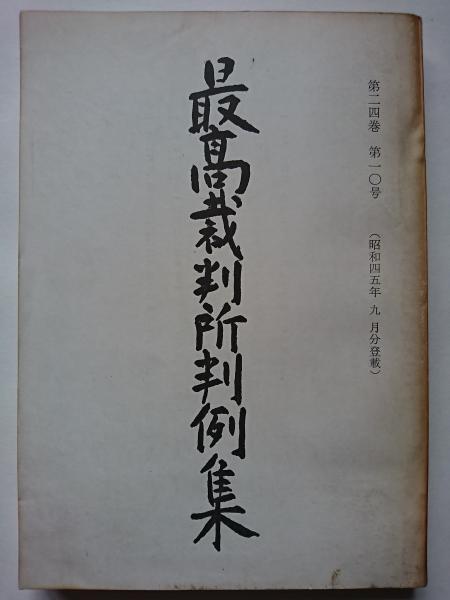 第二四巻 第一〇号 (昭和四五年 九 月分登載)
最高裁判所判例集